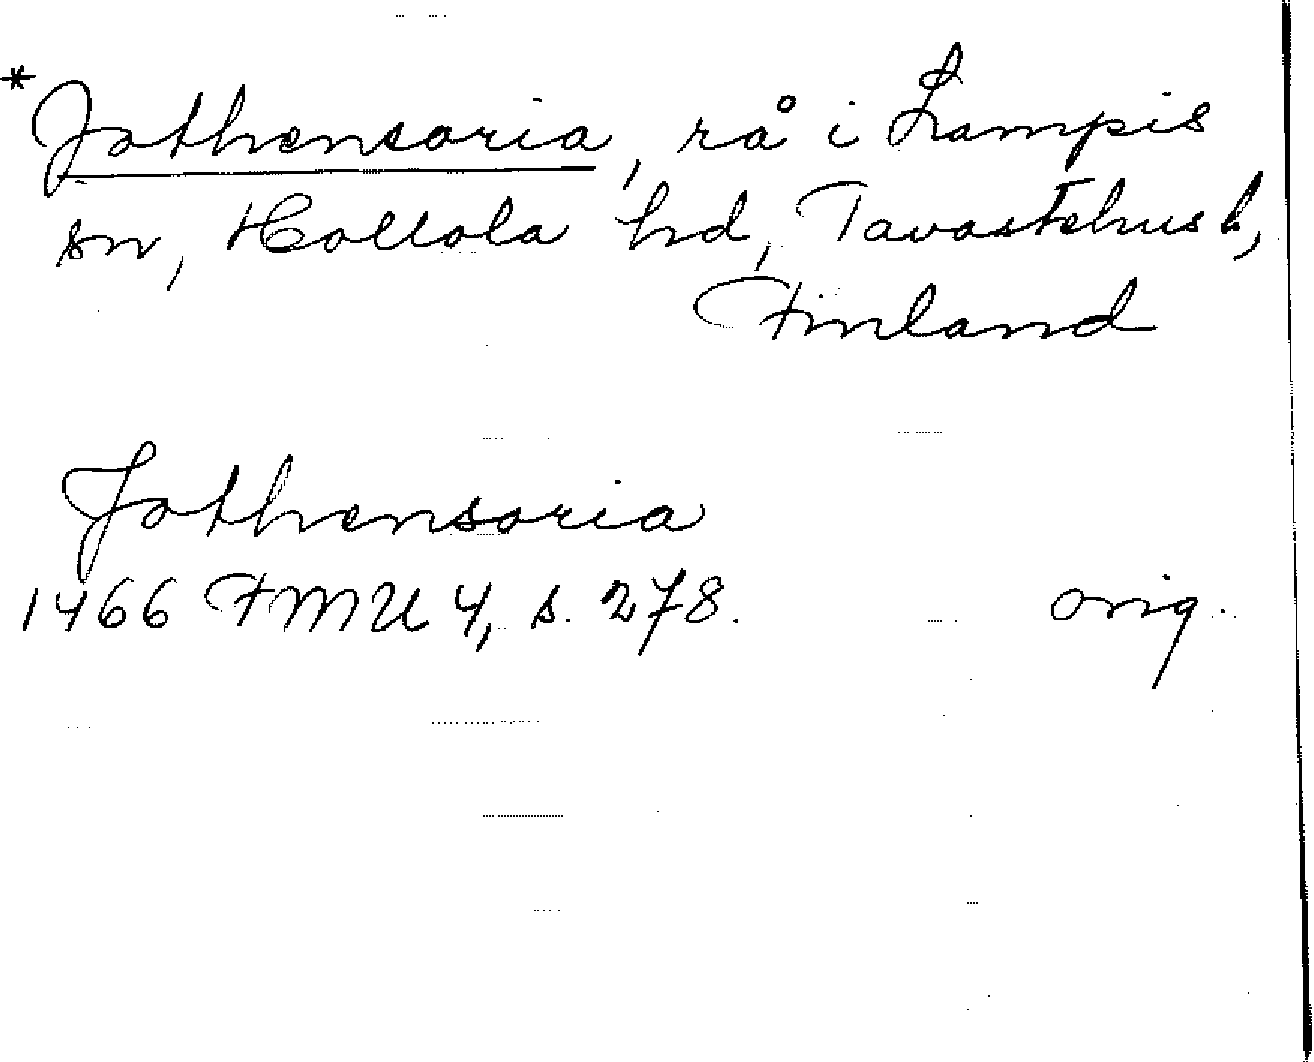 *Jothensoria, rå i Lampis
sn, Hollola hd, Tavastehus l,
Finland
Jothensoria
1466 FMU 4, s. 278. orig.